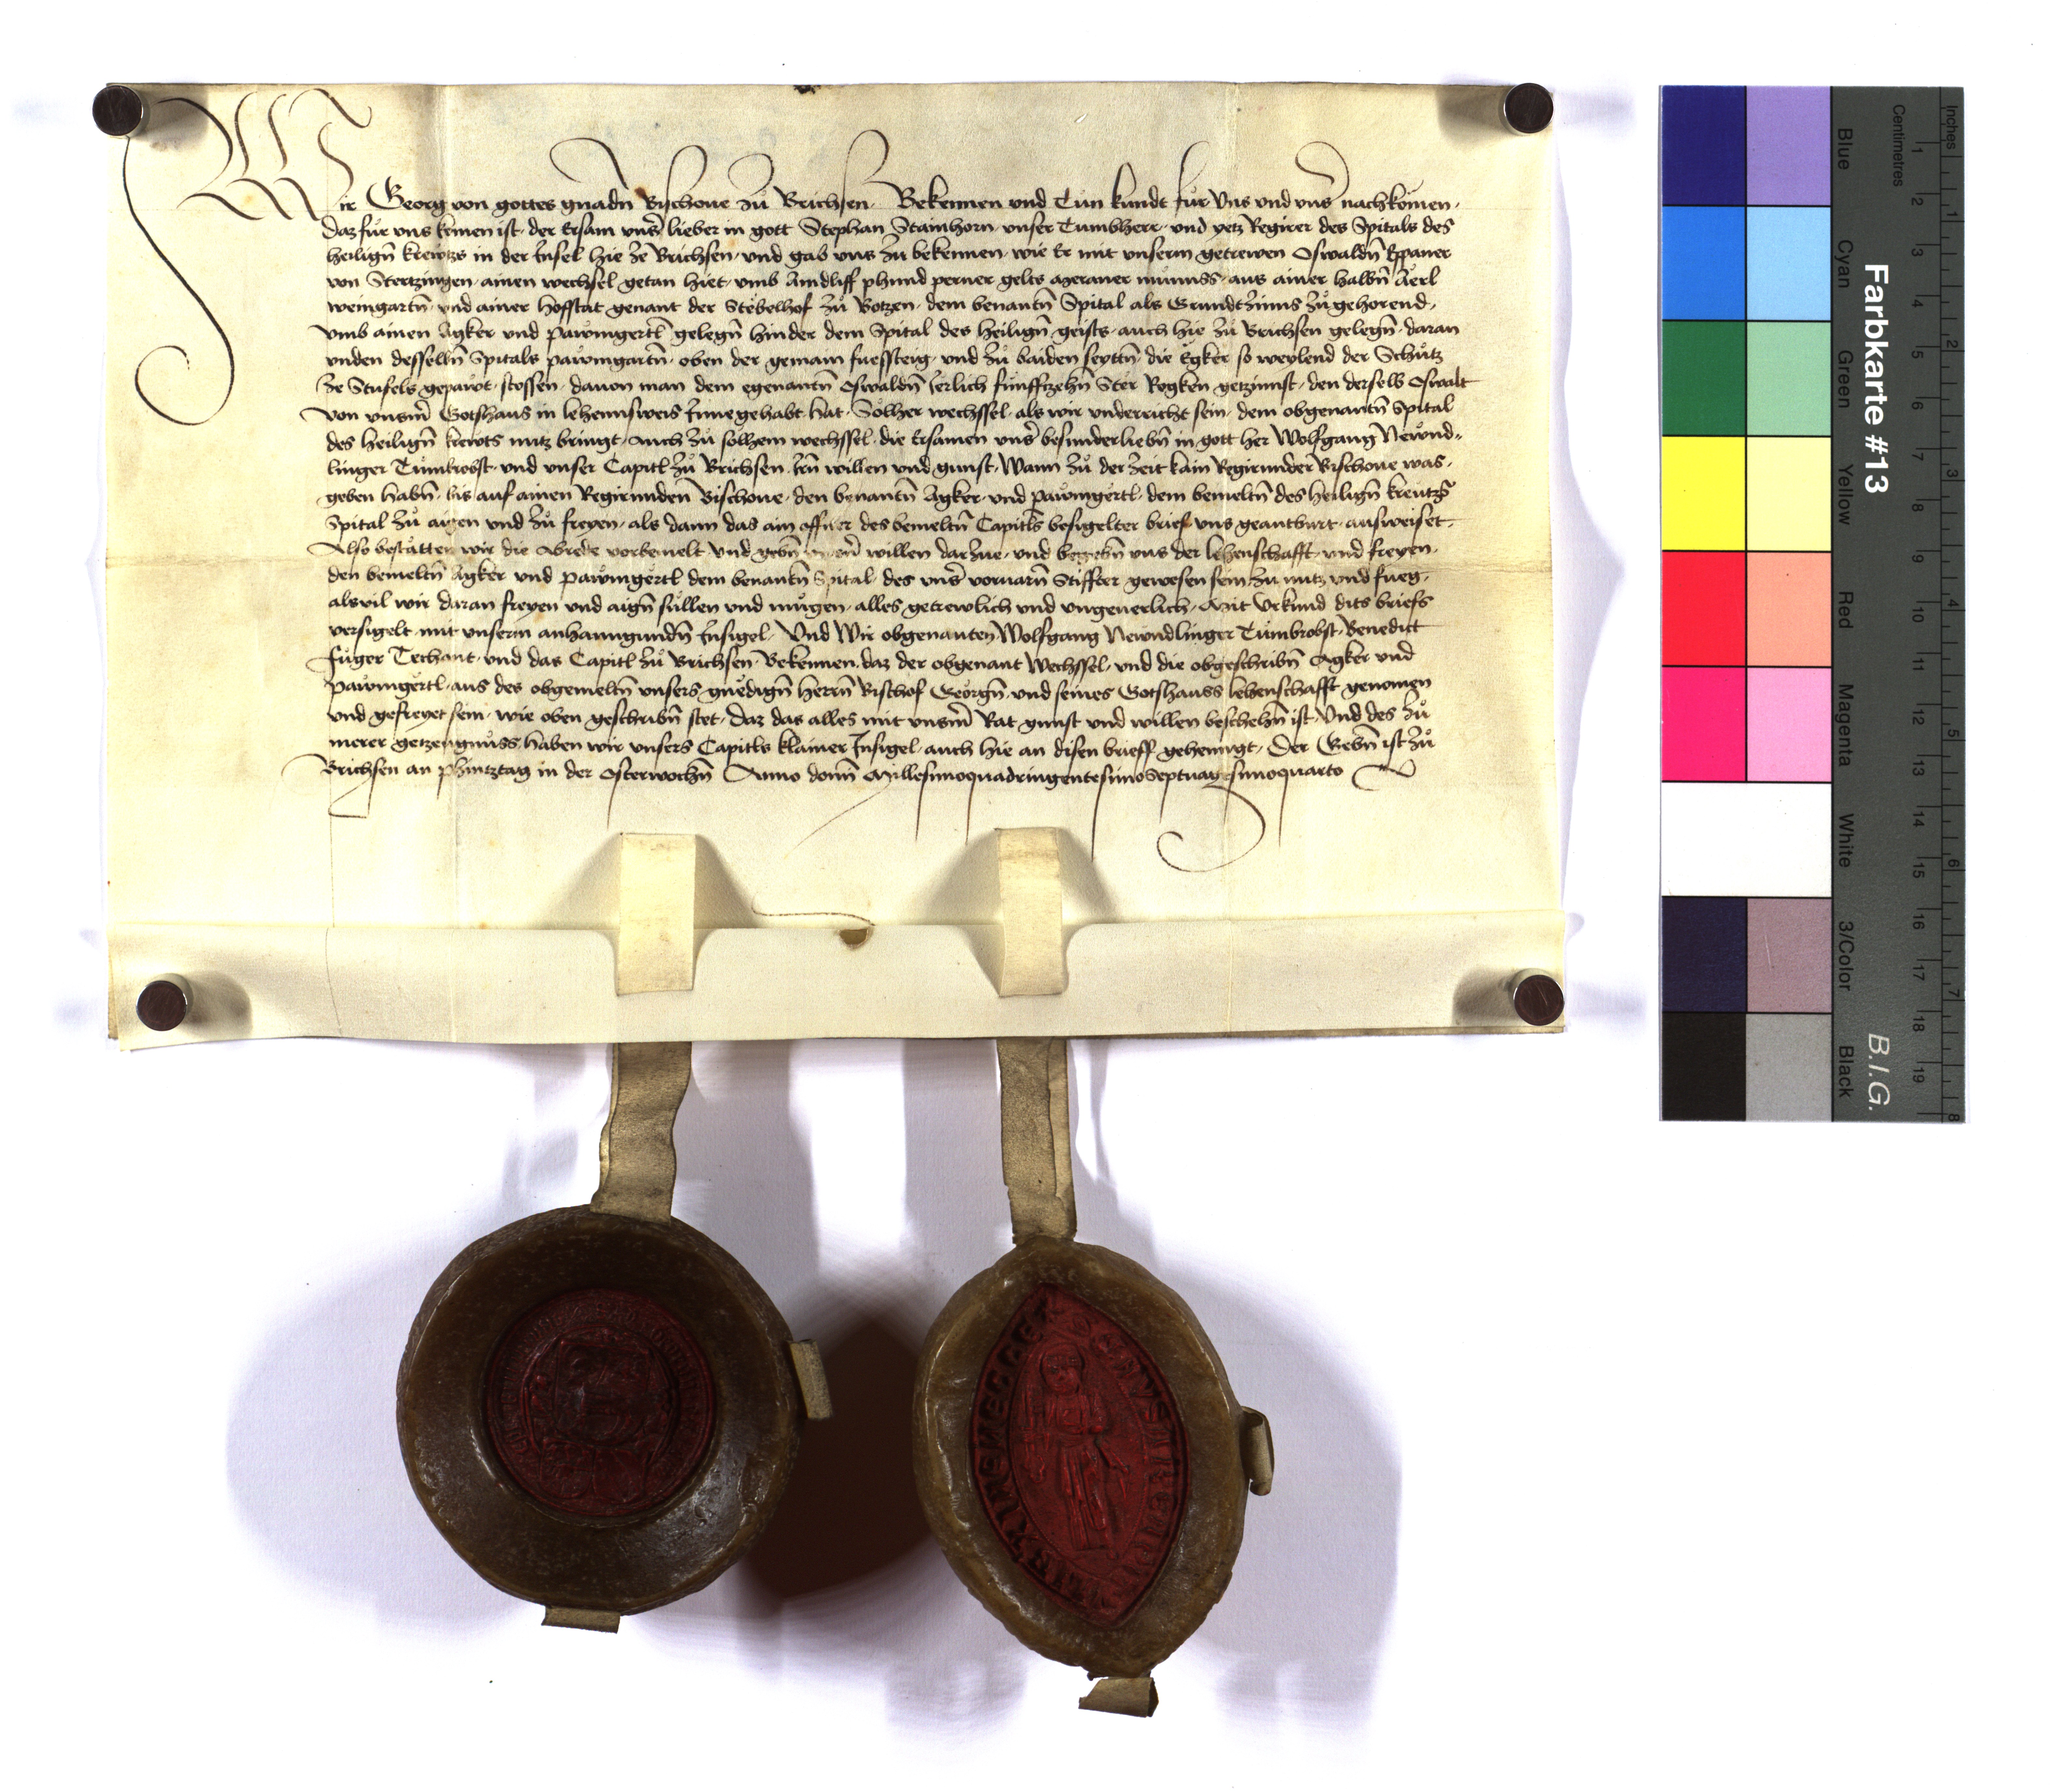 Wir Georg von gottes gnadn̄ Bischoue zů Brichsen Bekennen und Tůn kůndt fůr Uns und unẜ nachkomen
daz fůr uns komen ist der Ersam unsẜ lieber in gott Stephan Stainhorn unser Tumbherr und yetz Regirer des Spitals des
heilign̄ krewtzs in der Insel hie ze Brichsen und gab uns zu bekennen wie Er mit unserm getrewen Oswaldn̄
von Stertzingen ainen wechsel getan hiet umb Aindliff phund perner gelts Meraner můnnss aus ainer halbn̄ Aerl
weingartn̄ und ainer hoffstat genant der Stëbelhof zů Botzen dem benantn̄ Spital als Grundtzinns zůgehorend
umb ainen Agker und pawmgertl gelegn̄ hinder dem Spital des heilign̄ geists auch hie zů Brichsen gelegn̄ daran
unden desselbn̄ Spitals pawmgartn̄ oben der gemain fuessteig und zů baiden seyttn̄ die Egker so weylend der Schůtz
ze Stufels gepawt stossen dauon man dem egenantn̄ Oswaldn̄ Ierlich funfftzehn̄ Ster Rogken getzinnst den derselb Oswalt
von unsm̄ Gotshaus in lehennsweis Innegehabt hat Sölher wechssel als wir undericht sein dem obgenantn̄ Spital
des heilign̄ krewts nutz bringt auch zů solhem wechssel die Ersamen unsẜ besunderliebn̄ in gott her Wolfgang Newnd-
linger Tůmbrobst und unser Capitl zů Brichsen Irn̄ willen und gunst Wann zů der zeit kain Regirunder Bischoue was
geben habn̄ bis auf ainen Regirunden Bischoue den benantn̄ Agker und pawmgertl dem bemeltn̄ des heilign̄ kreutzs
Spital zů aigen und zů freyen als dann das ain offner des bemeltn̄ Capitls besigelter brief uns geantburt ausweiset
Also bestätten wir die Abrede vorbemelt und gebn̄ willen darzue und verzeihn̄ uns der lehenschafft und freyen
den bemeltn̄ Agker und pawmgertl dem benantn̄ Spital des unsẜ voruarn̄ Stiffter gewesen sein zu nutz und fueg
alsvil wir daran freyen und aign̄ sůllen und můgen alles getrewlich und ungeuerlich Mit Urkund dits briefs
versigelt mit unserm anhanngundn̄ Insigel Und Wir obgenanten Wolfgang Newndlinger Tůmbrobst Benedict
Fůger Techant und das Capitl zů Brichsen Bekennen daz der obgenant Wechssel und die obgeschribn̄ Agker und
pawmgertl aus des obgemeltn̄ unsers gnëdign̄ herrn̄ Bischof Georgn̄ und seines Gotshauss lehenschafft genomen
und gefreyet sein wie oben geschribn̄ stet daz das alles mit unsm̄ Rat gunst und willen beschehn̄ ist Und des zů
merer getzeugnůss haben wir unsers Capitls klainer Insigel auch hie an disen brieff gehenngt Der Gebn̄ ist zů
Brichsen an phintztag in der Osterwochn̄ Anno domī Millesimoquadringentesimoseptuagesimoquarto
Farbkarte #13
B.I.G.
Inches
Centimetres
1 2 3 4 5 6 7 8 9 10 11 12 13 14 15 16 17 18 19
1 2 3 4 5 6 7 8
Blue
Cyan
Green
Yellow
Red
Magenta
White
3/Color
Black